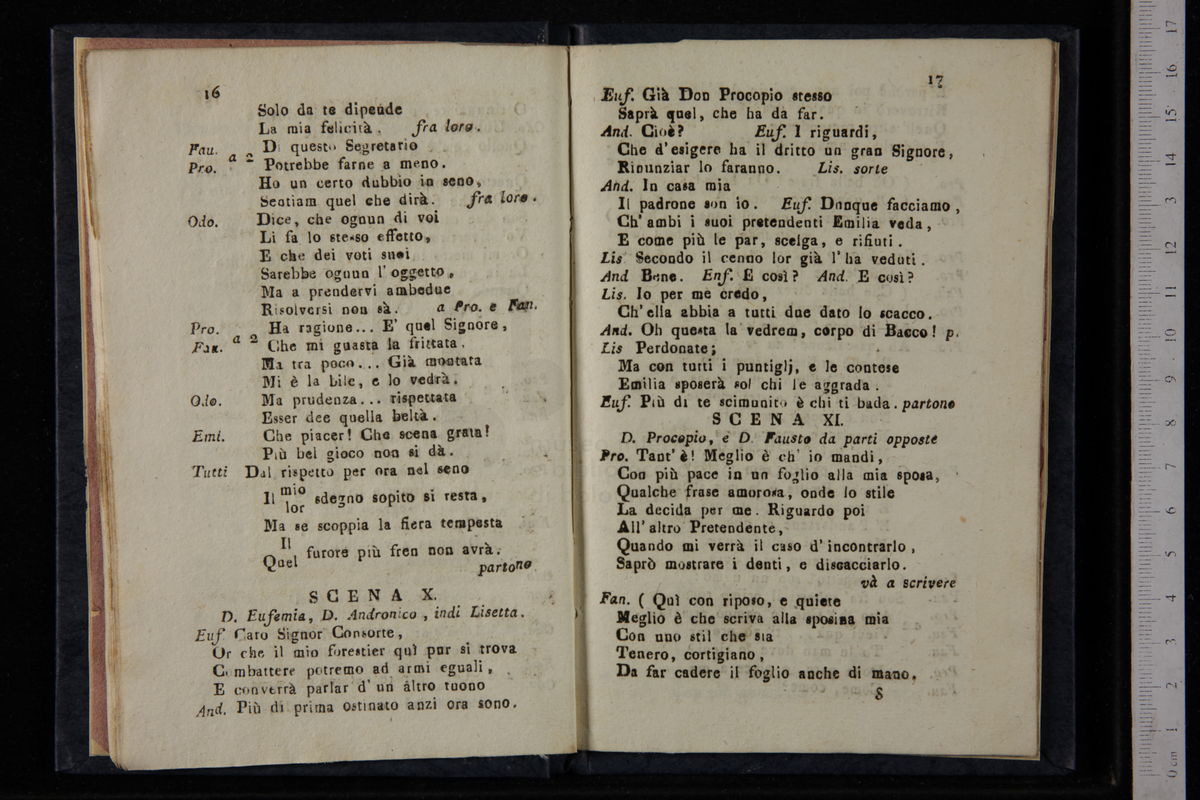 16
Solo da te dipende
La mia felicità. fra loro.
Fau. a 2 Di questo Segretario
Pro. Potrebbe farne a meno.
Ho un certo dubbio in seno,
Sentiam quel che dirà. fra loro.
Odo. Dice, che ognun di voi
Li fa lo stesso effetto,
E che dei voti suoi
Sarebbe ognun l'oggetto,
Ma a prendervi ambedue
Risolversi non sà. a Pro. e Fan.
Pro. a 2 Ha ragione... E' quel Signore,
Fau. Che mi guasta la frittata.
Ma tra poco... Già montata
Mi è la bile, e lo vedrà.
Odo. Ma prudenza... rispettata
Esser dee quella beltà.
Emi. Che piacer! Che scena grata!
Più bel gioco non si dà.
Tutti Dal rispetto per ora nel seno
Il mio lor sdegno sopito si resta,
Ma se scoppia la fiera tempesta
Il Quel furore più fren non avrà.
partono
SCENA X.
D. Eufemia, D. Andronico, indi Lisetta.
Euf. Caro Signor Consorte,
Or che il mio forestier quì pur si trova
Combattere potremo ad armi eguali,
E converrà parlar d'un altro tuono
And. Più di prima ostinato anzi ora sono.
17
Euf. Già Don Procopio stesso
Saprà quel, che ha da far.
And. Cioè? Euf. I riguardi,
Che d'esigere ha il dritto un gran Signore,
Rinunziar lo faranno. Lis. sorte
And. In casa mia
Il padrone son io. Euf. Dunque facciamo,
Ch'ambi i suoi pretendenti Emilia veda,
E come più le par, scelga, e rifiuti.
Lis Secondo il cenno lor già l'ha veduti.
And Bene. Enf. E così? And. E così?
Lis. Io per me credo,
Ch'ella abbia a tutti due dato lo scacco.
And. Oh questa la vedrem, corpo di Bacco! p.
Lis Perdonate;
Ma con tutti i puntiglj, e le contese
Emilia sposerà sol chi le aggrada.
Euf. Più di te scimunito è chi ti bada. partono
SCENA XI.
D. Procopio, e D. Fausto da parti opposte
Pro. Tant'è! Meglio è ch'io mandi,
Con più pace in un foglio alla mia sposa,
Qualche frase amorosa, onde lo stile
La decida per me. Riguardo poi
All'altro Pretendente,
Quando mi verrà il caso d'incontrarlo,
Saprò mostrare i denti, e discacciarlo.
và a scrivere
Fan. ( Quì con riposo, e quiete
Meglio è che scriva alla sposina mia
Con uno stil che sia
Tenero, cortigiano,
Da far cadere il foglio anche di mano.
S
0 cm 1 2 3 4 5 6 7 8 9 10 11 12 13 14 15 16 17